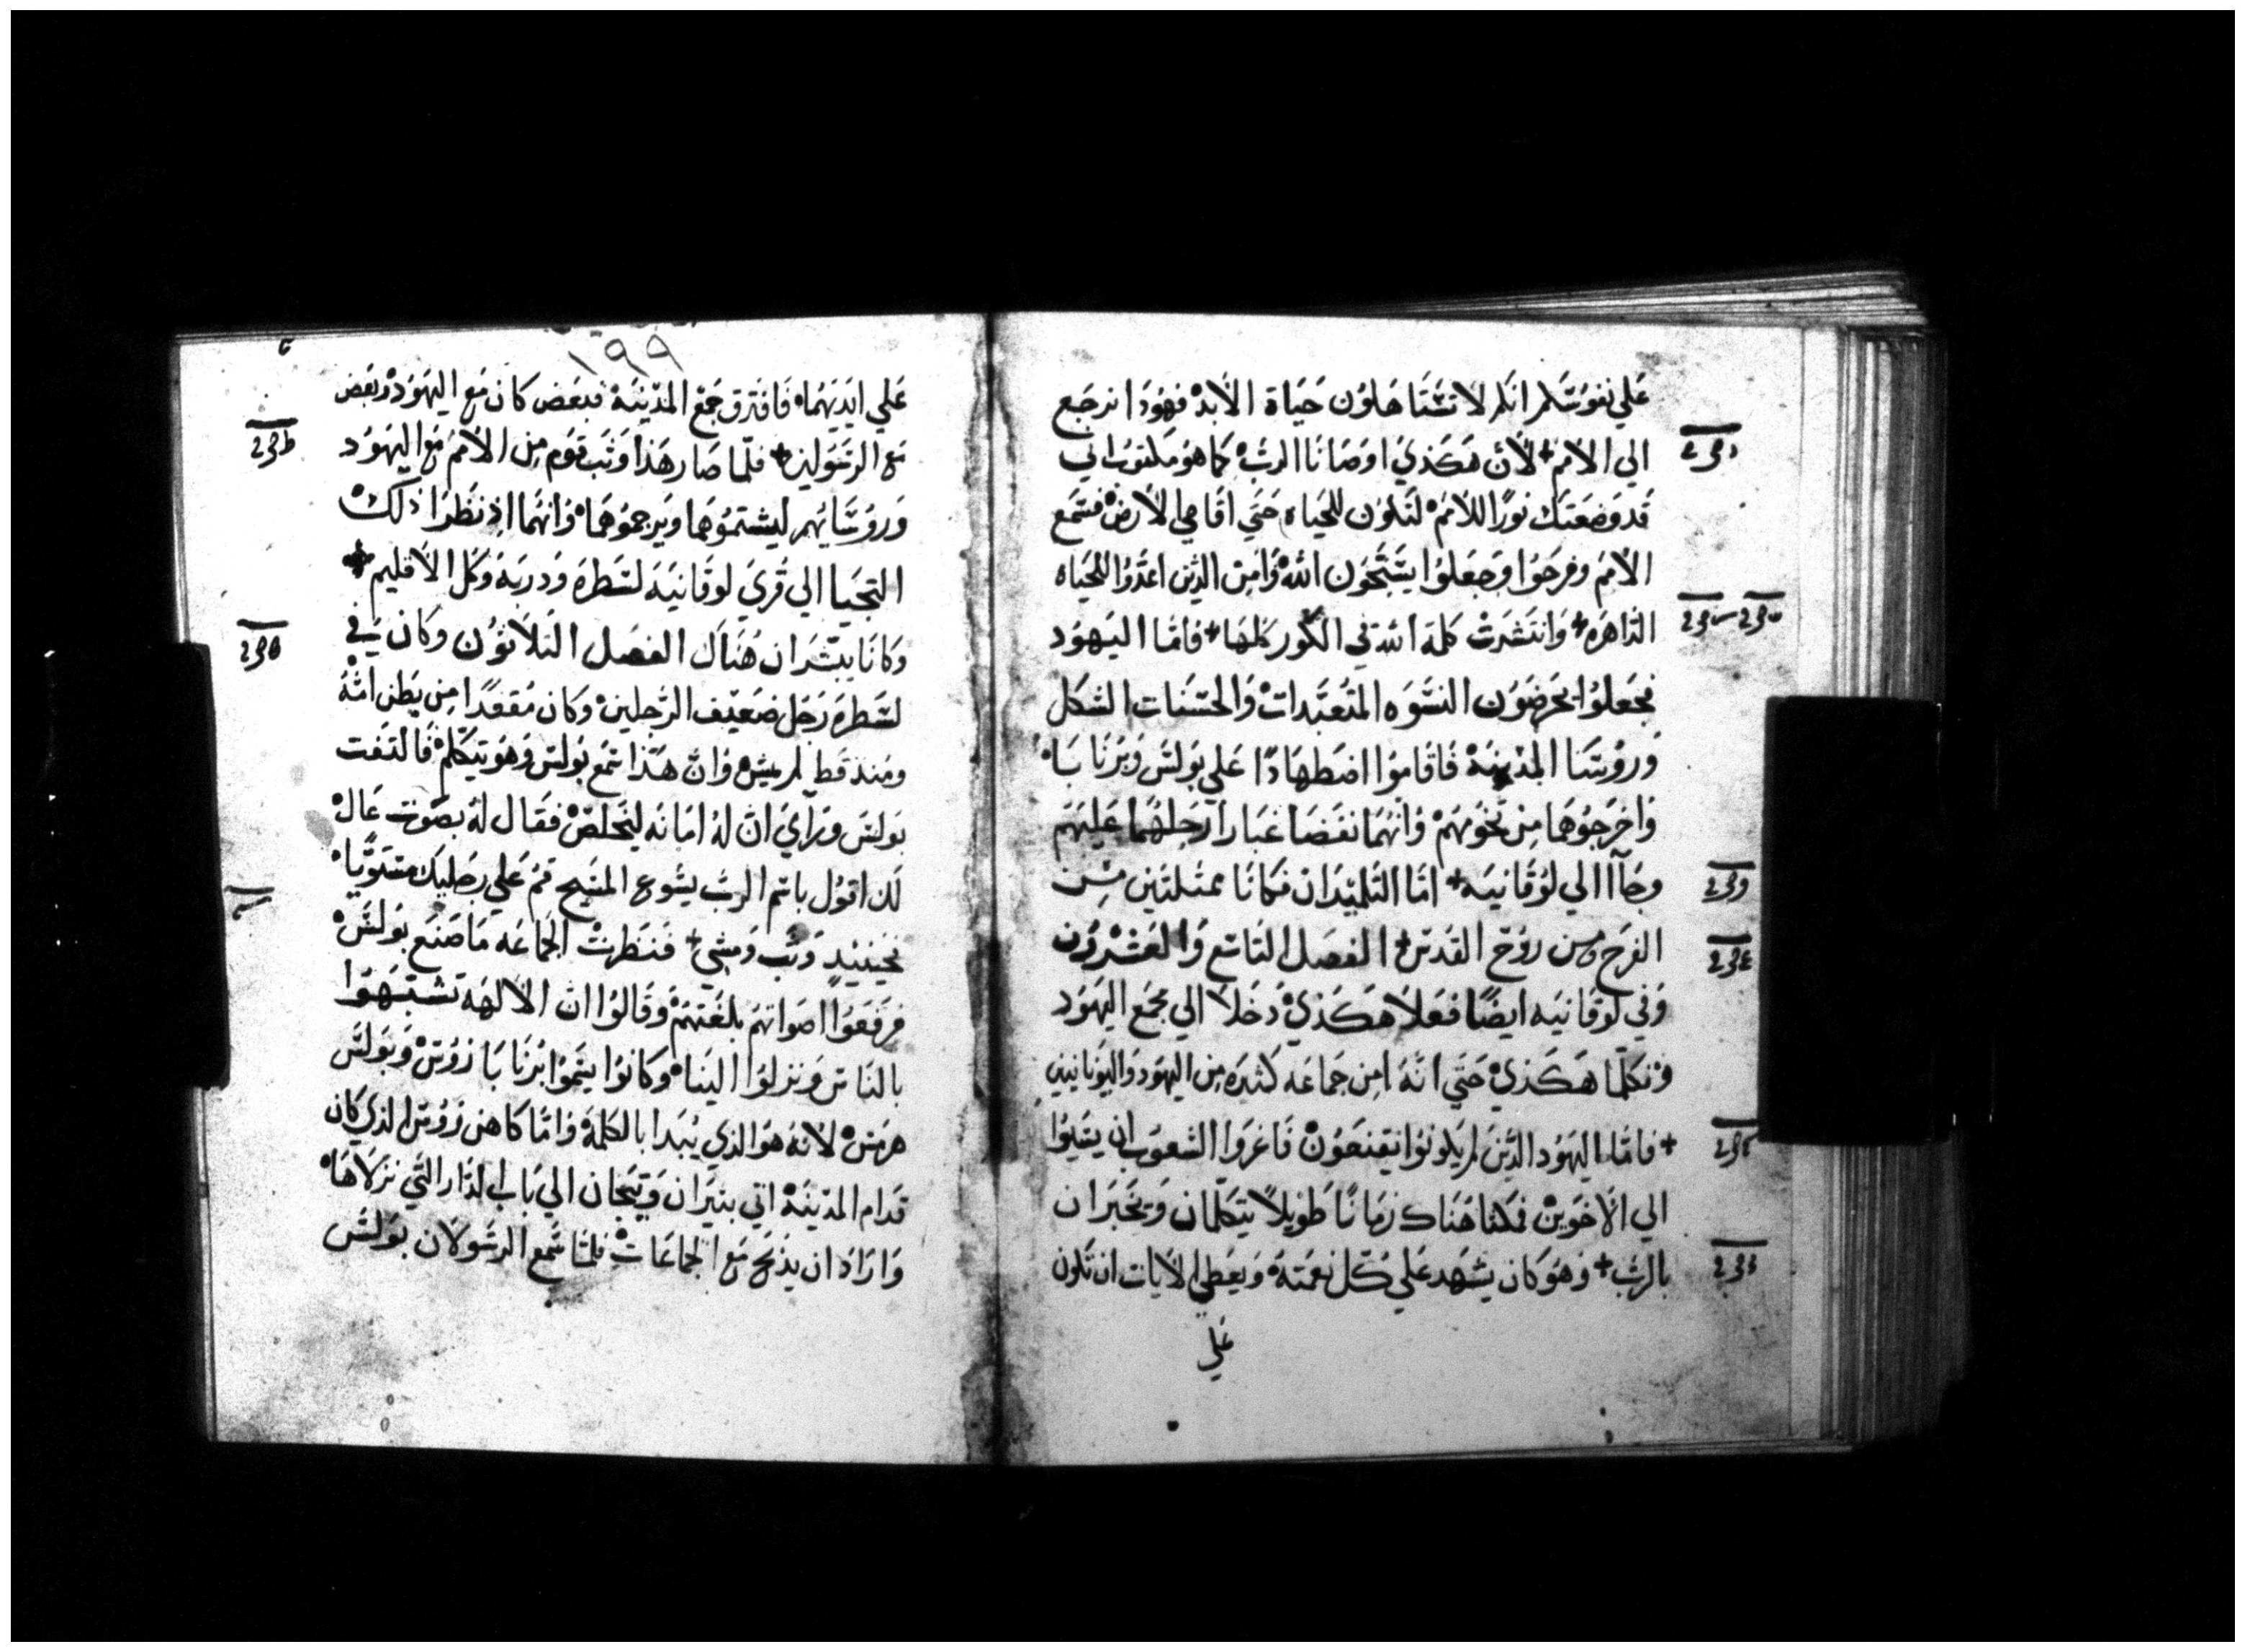 علي نفوسكم انكم لا تستاهلون حياة الابد فهودا نرجع
الي الامم + لان هكذي اوصانا الرب كما هو مكتوب اني
قد وضعتك نورا للامم لتكون للحياه حتي اقاصي الارض فسمع
الامم وفرحوا وجعلوا يسبحون الله وامن الذين اعدوا للحياه
الداهره + وانتشرت كلمة الله في الكور كلها + فاما اليهود
فجعلوا يحرضون النسوه المتعبدات والحسنات الشكل
وروسا المدينة فاقاموا اضطهادا علي بولس وبرنابا
واخرجوهما من تخومهم وانهما نفضا غبار ارجلهما عليهم
وجاآ الي لوقانيه + اما التلميذان فكانا ممتلئين من
الفرح ومن روح القدس + الفصل التاسع والعشرون
وفي لوقانيه ايضا فعلا هكذي دخلا الي مجمع اليهود
وتكلما هكذي حتي انه امن جماعه كثيره من اليهود واليونانيين
+ فاما اليهود الذين لم يكونوا يقنعون فاغروا الشعوب ان يسيوا
الي الاخوين فمكثا هناك زمانا طويلا يتكلمان ويخبران
بالرب + وهو كان يشهد علي كل نعمته ويعطي الايات ان تكون
علي
١٩٩
علي ايديهما فافترق جمع المدينة فبعض كان مع اليهود وبعض
مع الرسولين + فلما صار هذا وثب قوم من الامم مع اليهود
وروسايهم ليشتموهما ويرجموهما وانهما اذ نظرا ذلك
التجيا الي قري لوقانيه لسطره ودربه وكل الاقليم +
وكانا يبشران هناك الفصل الثلاثون وكان في
لسطره رجل ضعيف الرجلين وكان مقعدا من بطن امه
ومنذ قط لم يمش وان هذا سمع بولس وهو يتكلم فالتفت
بولس وراي ان له امانه ليخلص فقال له بصوت عال
لك اقول باسم الرب يسوع المسيح قم علي رجليك مستويا
فحينيذ وثب ومشي + فنظرت الجماعه ما صنع بولس
فرفعوا اصواتهم بلغتهم وقالوا ان الالهه تشبهوا
بالناس ونزلوا الينا وكانوا يسموا برنابا زوس وبولس
هرمس لانه هو الذي يبدا بالكلمة واما كاهن زوس الذي كان
قدام المدينة اتي بثيران وتيجان الي باب الدار التي نزلاها
واراد ان يذبح مع الجماعات فلما سمع الرسولان بولس